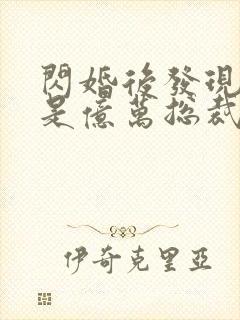 閃婚後發現
是億萬總裁
伊奇克里亞